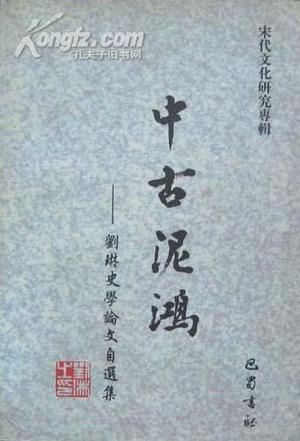 Kongfz.com
孔夫子旧书网
宋代文化研究專輯
中古泥鴻
——劉琳史學論文自選集
劉琳之印
巴蜀書社